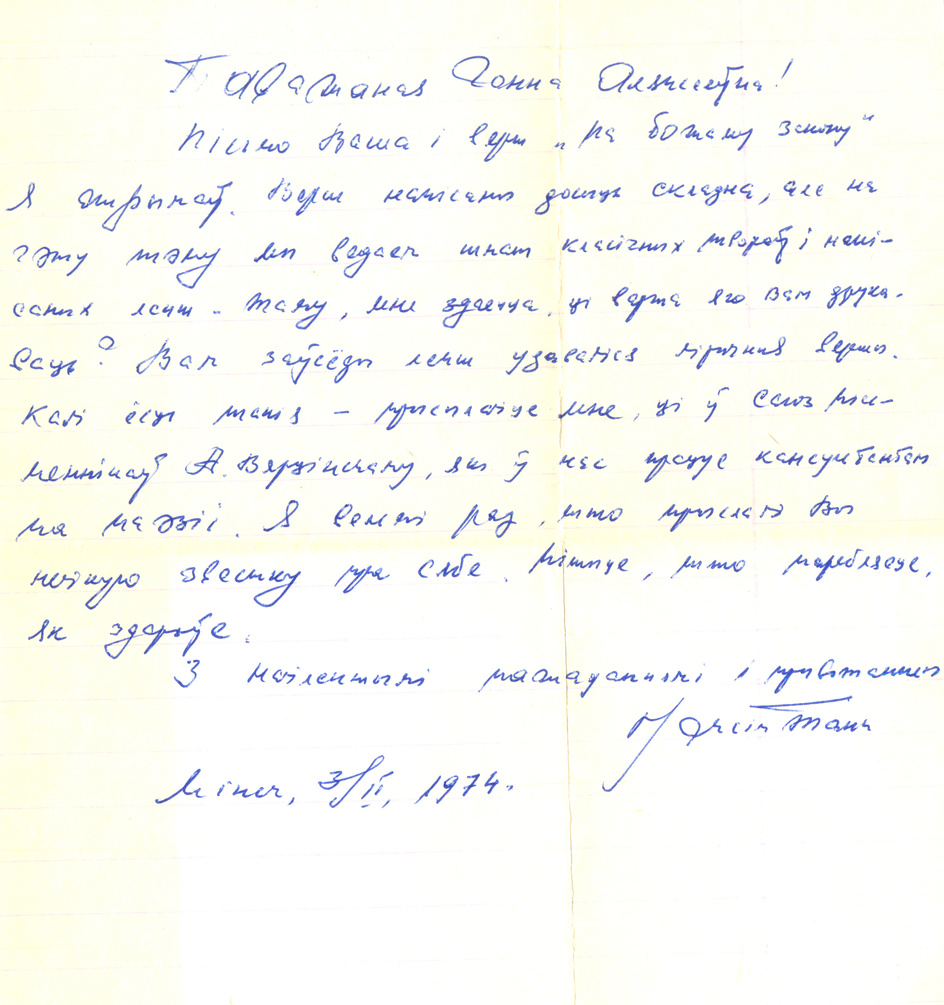 Паважаная Ганна Аляксееўна!
Пісьмо Ваша і верш „Па божаму закону“
я атрымаў. Верш напісаны досыць складна, але на
гэту тэму мы ведаем шмат класічных твораў і напі-
саных лепш. Таму, мне здаецца, ці варта яго Вам друка-
ваць? Вам заўсёды лепш удаваліся лірычныя вершы.
Калі ёсць такія – прысылайце мне, ці ў Саюз пісь-
меннікаў А. Вярцінскаму, які ў нас працуе кансультантам
па паэзіі. Я вельмі рад, што прыслалі Вы
нейкую звестку пра сябе. Пішыце, што парабляеце,
як здароўе.
З найлепшымі пажаданнямі і прывітаннем
Максім Танк
Мінск, 3/II, 1974.